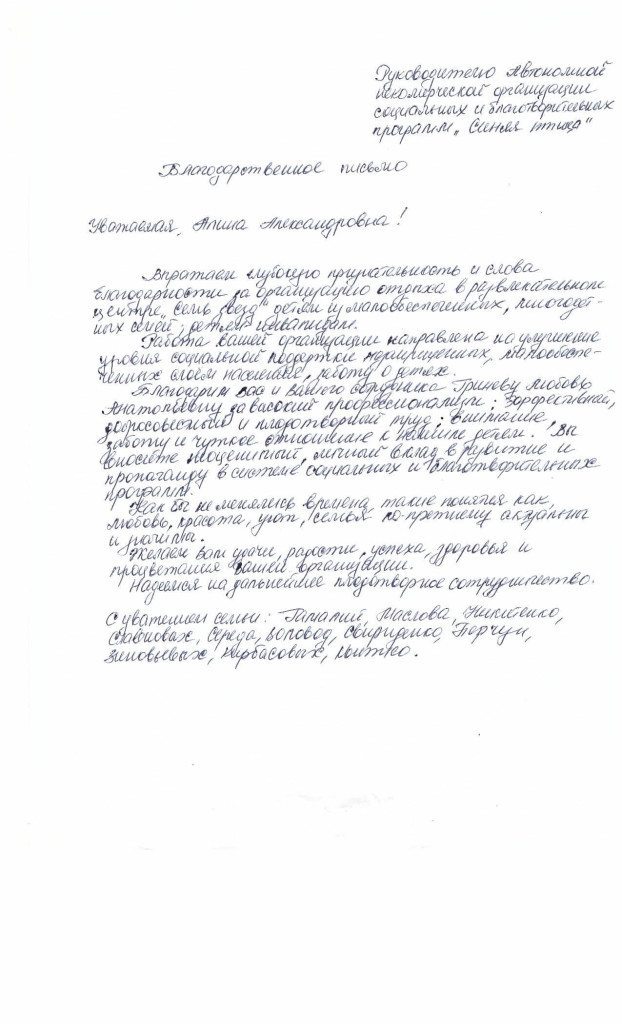 Руководителю Автономной
некомерческой организации
социальных и благотворительных
программ „Синяя птица"
Благодарственное письмо
Уважаемая, Алина Александровна!
Выражаем глубокую признательность и слова
благодарности за организацию отдыха в развлекательном
центре „Семь звезд" детям из малообеспеченных, многодет-
ных семей, детям инвалидам.
Работа вашей организации направлена на улучшение
уровня социальной поддержки незащищенных, малообеспе-
ченных слоем населения, заботу о детях.
Благодарим вас и вашего сотрудника Гриневу Любовь
Анатольевну за высокий профессионализм; эффективный,
добросовестный и плодотворный труд; внимание,
заботу и чуткое отношение к нашим детям. Вы
вносите неоценимый, личный вклад в развитие и
пропаганду в системе социальных и благотворительных
программ.
Как бы не менялись времена, такие понятия как,
любовь, красота, уют, семья по-прежнему актуальны
и значимы.
Желаем вам удачи, радости, успеха, здоровья и
процветания вашей организации.
Надеемся на дальнейшее плодотворное сотрудничество.
С уважением семьи: Маслова, Никитенко,
Середа, Воловод, Свириденко,
Зиновьевых, Карбасовых,